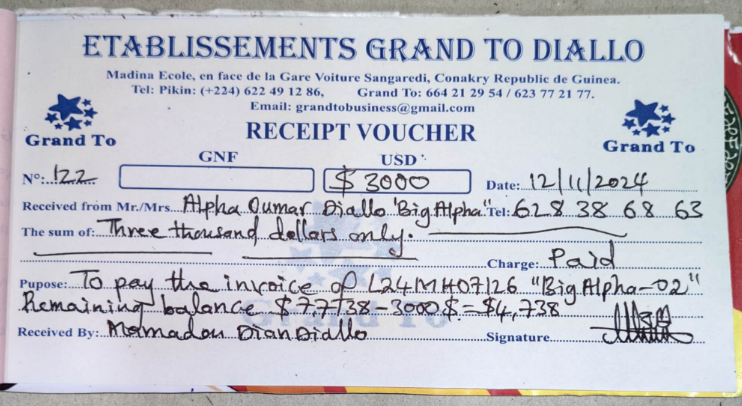 ETABLISSEMENTS GRAND TO DIALLO
Madina Ecole, en face de la Gare Voiture Sangaredi, Conakry Republic de Guinea.
Tel: Pikin: (+224) 622 49 12 86, Grand To: 664 21 29 54 / 623 77 21 77.
Email: grandtobusiness@gmail.com
Grand To RECEIPT VOUCHER Grand To
GNF USD
N°: 122 $ 3000 Date: 12/11/2024
Received from Mr./Mrs. Alpha Oumar Diallo "Big Alpha" Tel: 628 38 68 63
The sum of: Three thousand dollars only.
Charge: Paid
Pupose: To pay the invoice of L24MH07126 "Big Alpha-02"
Remaining balance $7,738-3000$=$4,738
Received By: Mamadou Dian Diallo Signature